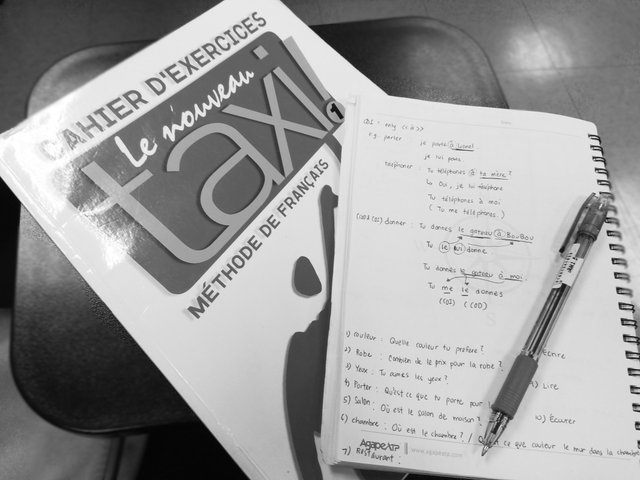 CAHIER D'EXERCICES
Le nouveau
taxi!
1
MÉTHODE DE FRANÇAIS
COI : only << à >>
E.g. parler je parle à Lionel
je lui parle
téléphoner : Tu téléphones à ta mère?
Oui, je lui téléphone
Tu téléphones à moi
(Tu me téléphones.)
donner : Tu donnes le gateau à BouBou
Tu le lui donne.
Tu donnes le gateau à moi.
Tu me le donnes
(COI) (COD)
1) couleur : Quelle couleur tu préfère?
2) Robe : Combien de le prix pour la robe?
3) Yeux : Tu aimes les yeux?
4) Porter : Qu'est ce que tu porte pour
5) Salon : Où est le salon de maison?
6) chambre : Où est le chambre? / ce que couleur le mur dans la chambre
7) Restaurant :
Ecrire
9) Lire
10) Ecouter
AgapeATP www.agapeatp.com